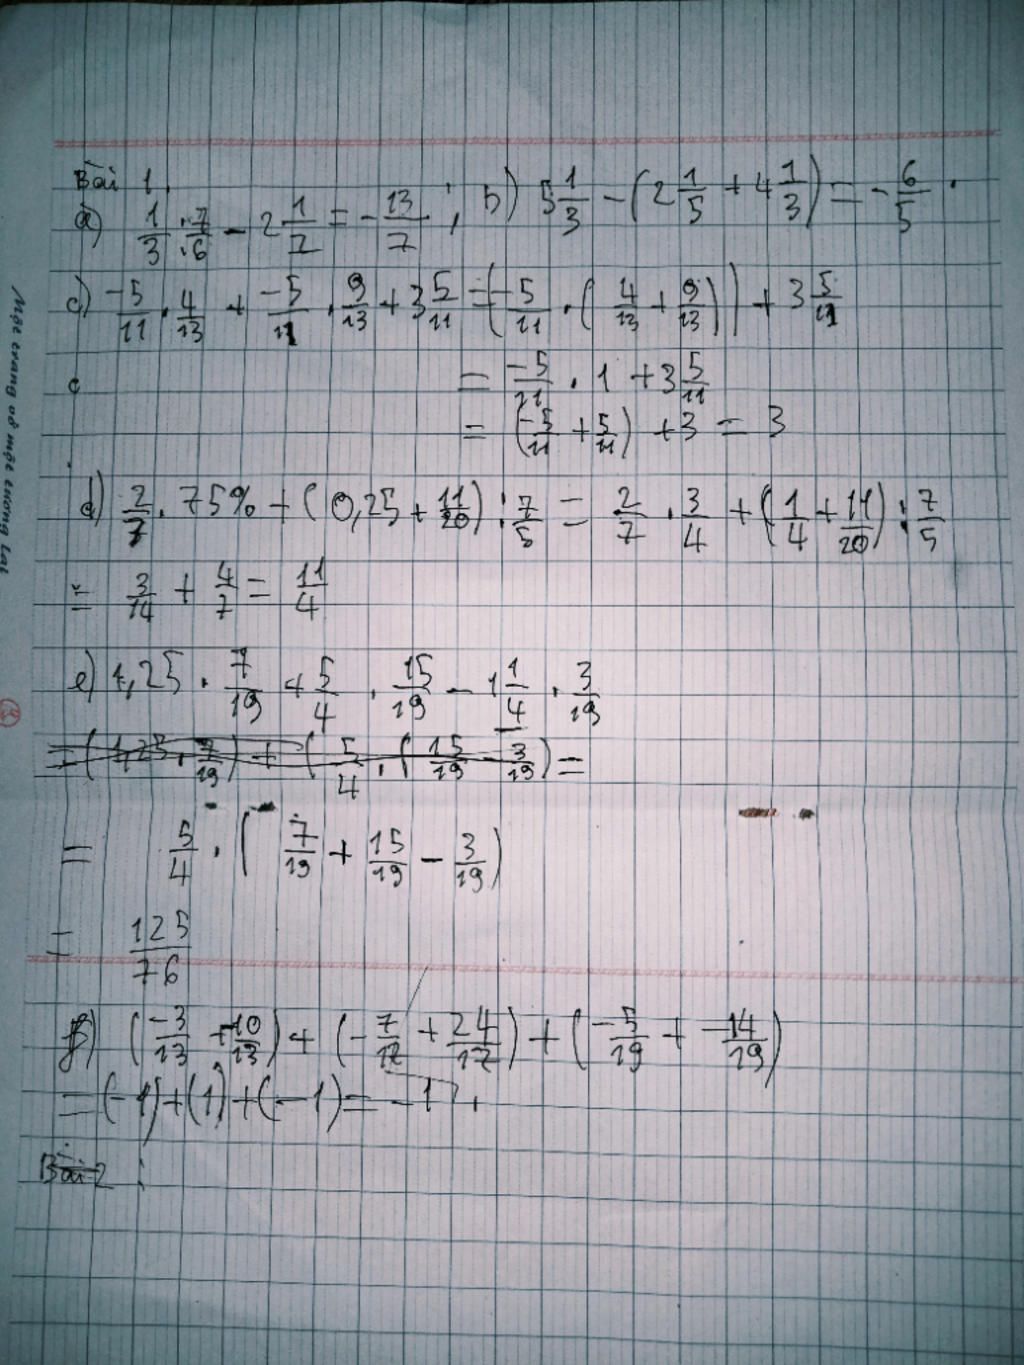 Bài 1.
a) 1/3 : 7/6 - 2 1/2 = - 13/7 ; b) 5 1/3 - (2 1/5 + 4 1/3) = - 6/5 .
c) -5/11 . 4/13 + -5/11 . 9/13 + 3 5/11 = (-5/11 . (4/13 + 9/13)) + 3 5/11
= -5/11 . 1 + 3 5/11
= (-5/11 + 5/11) + 3 = 3
d) 2/7 . 75% + (0,25 + 11/20) : 7/5 = 2/7 . 3/4 + (1/4 + 11/20) : 7/5
= 3/14 + 4/7 = 11/4
e) 1,25 . 7/19 + 5/4 . 15/19 - 1 1/4 . 3/19
= (1,25 . 7/19) + (5/4 . (15/19 - 3/19) =
= 5/4 . (7/19 + 15/19 - 3/19)
= 125/76
f) (-3/13 + -10/13) + (-7/17 + 24/17) + (-5/19 + -14/19)
= (-1) + (1) + (-1) = -1 .
Bài 2 :
Một trang vở một tương lai